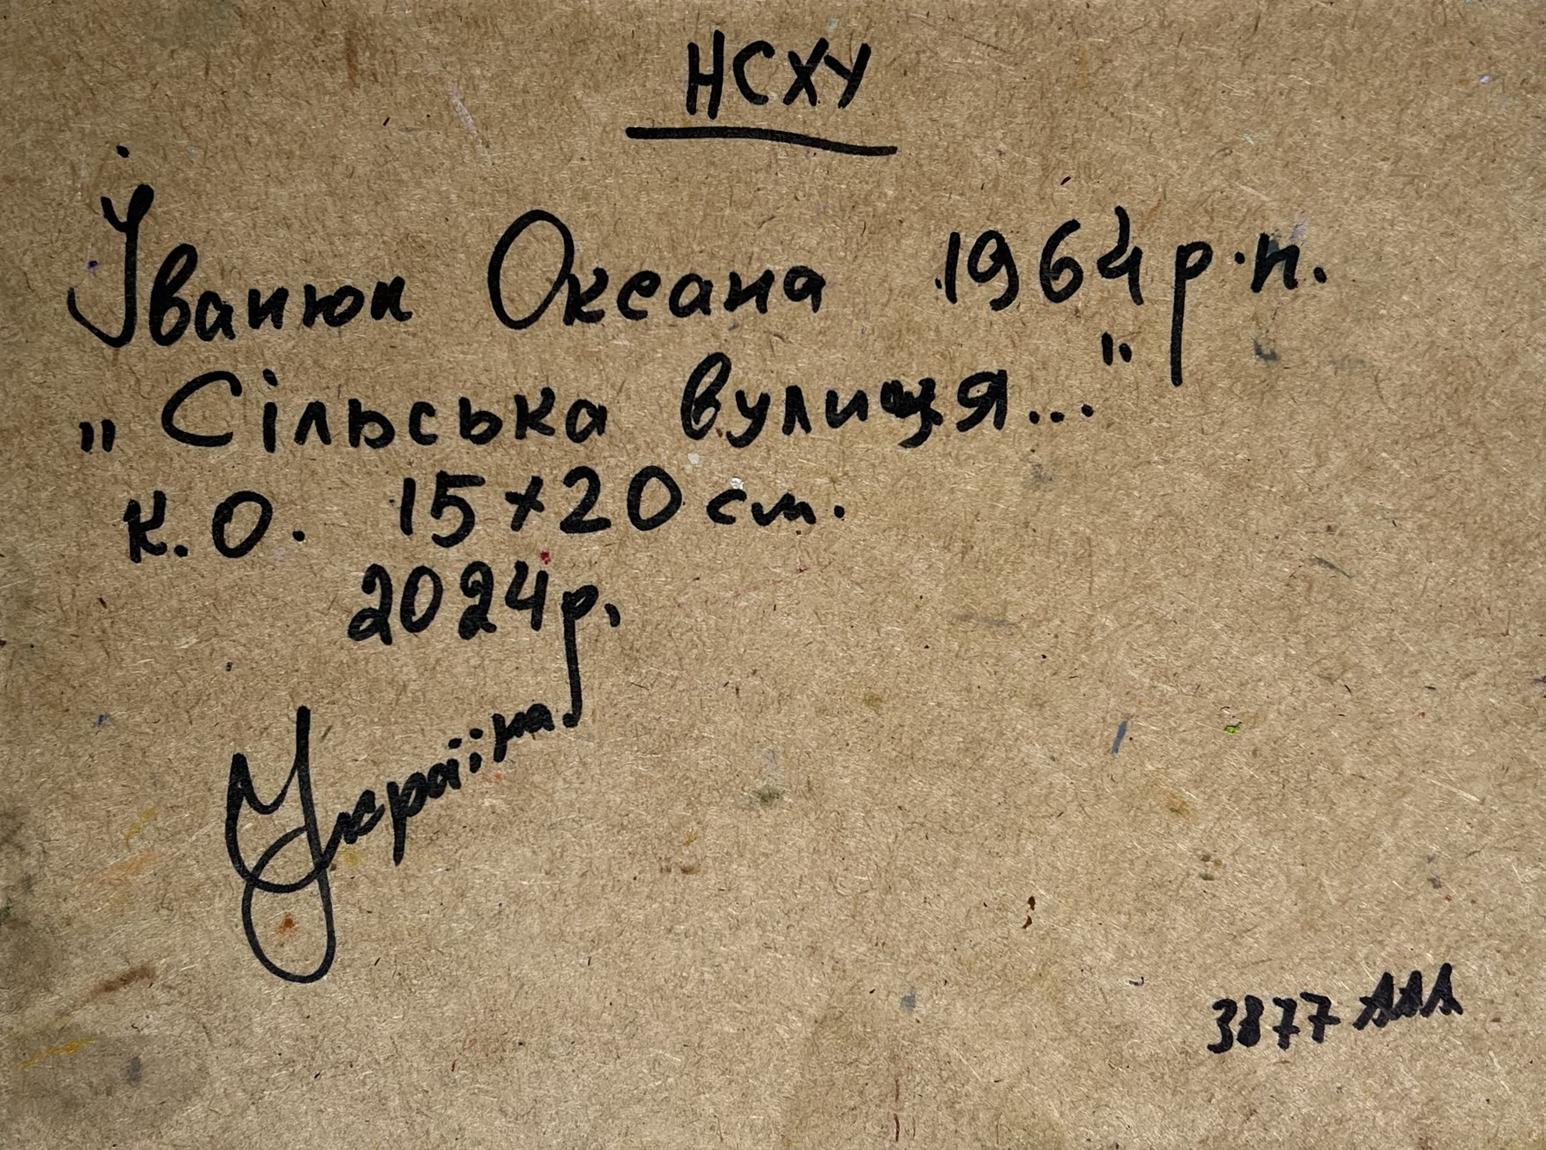 НСХУ
Іванюк Оксана 1964 р.н.
„Сільська вулиця..."
к.о. 15×20 см.
2024р.
Україна
3877 ААА